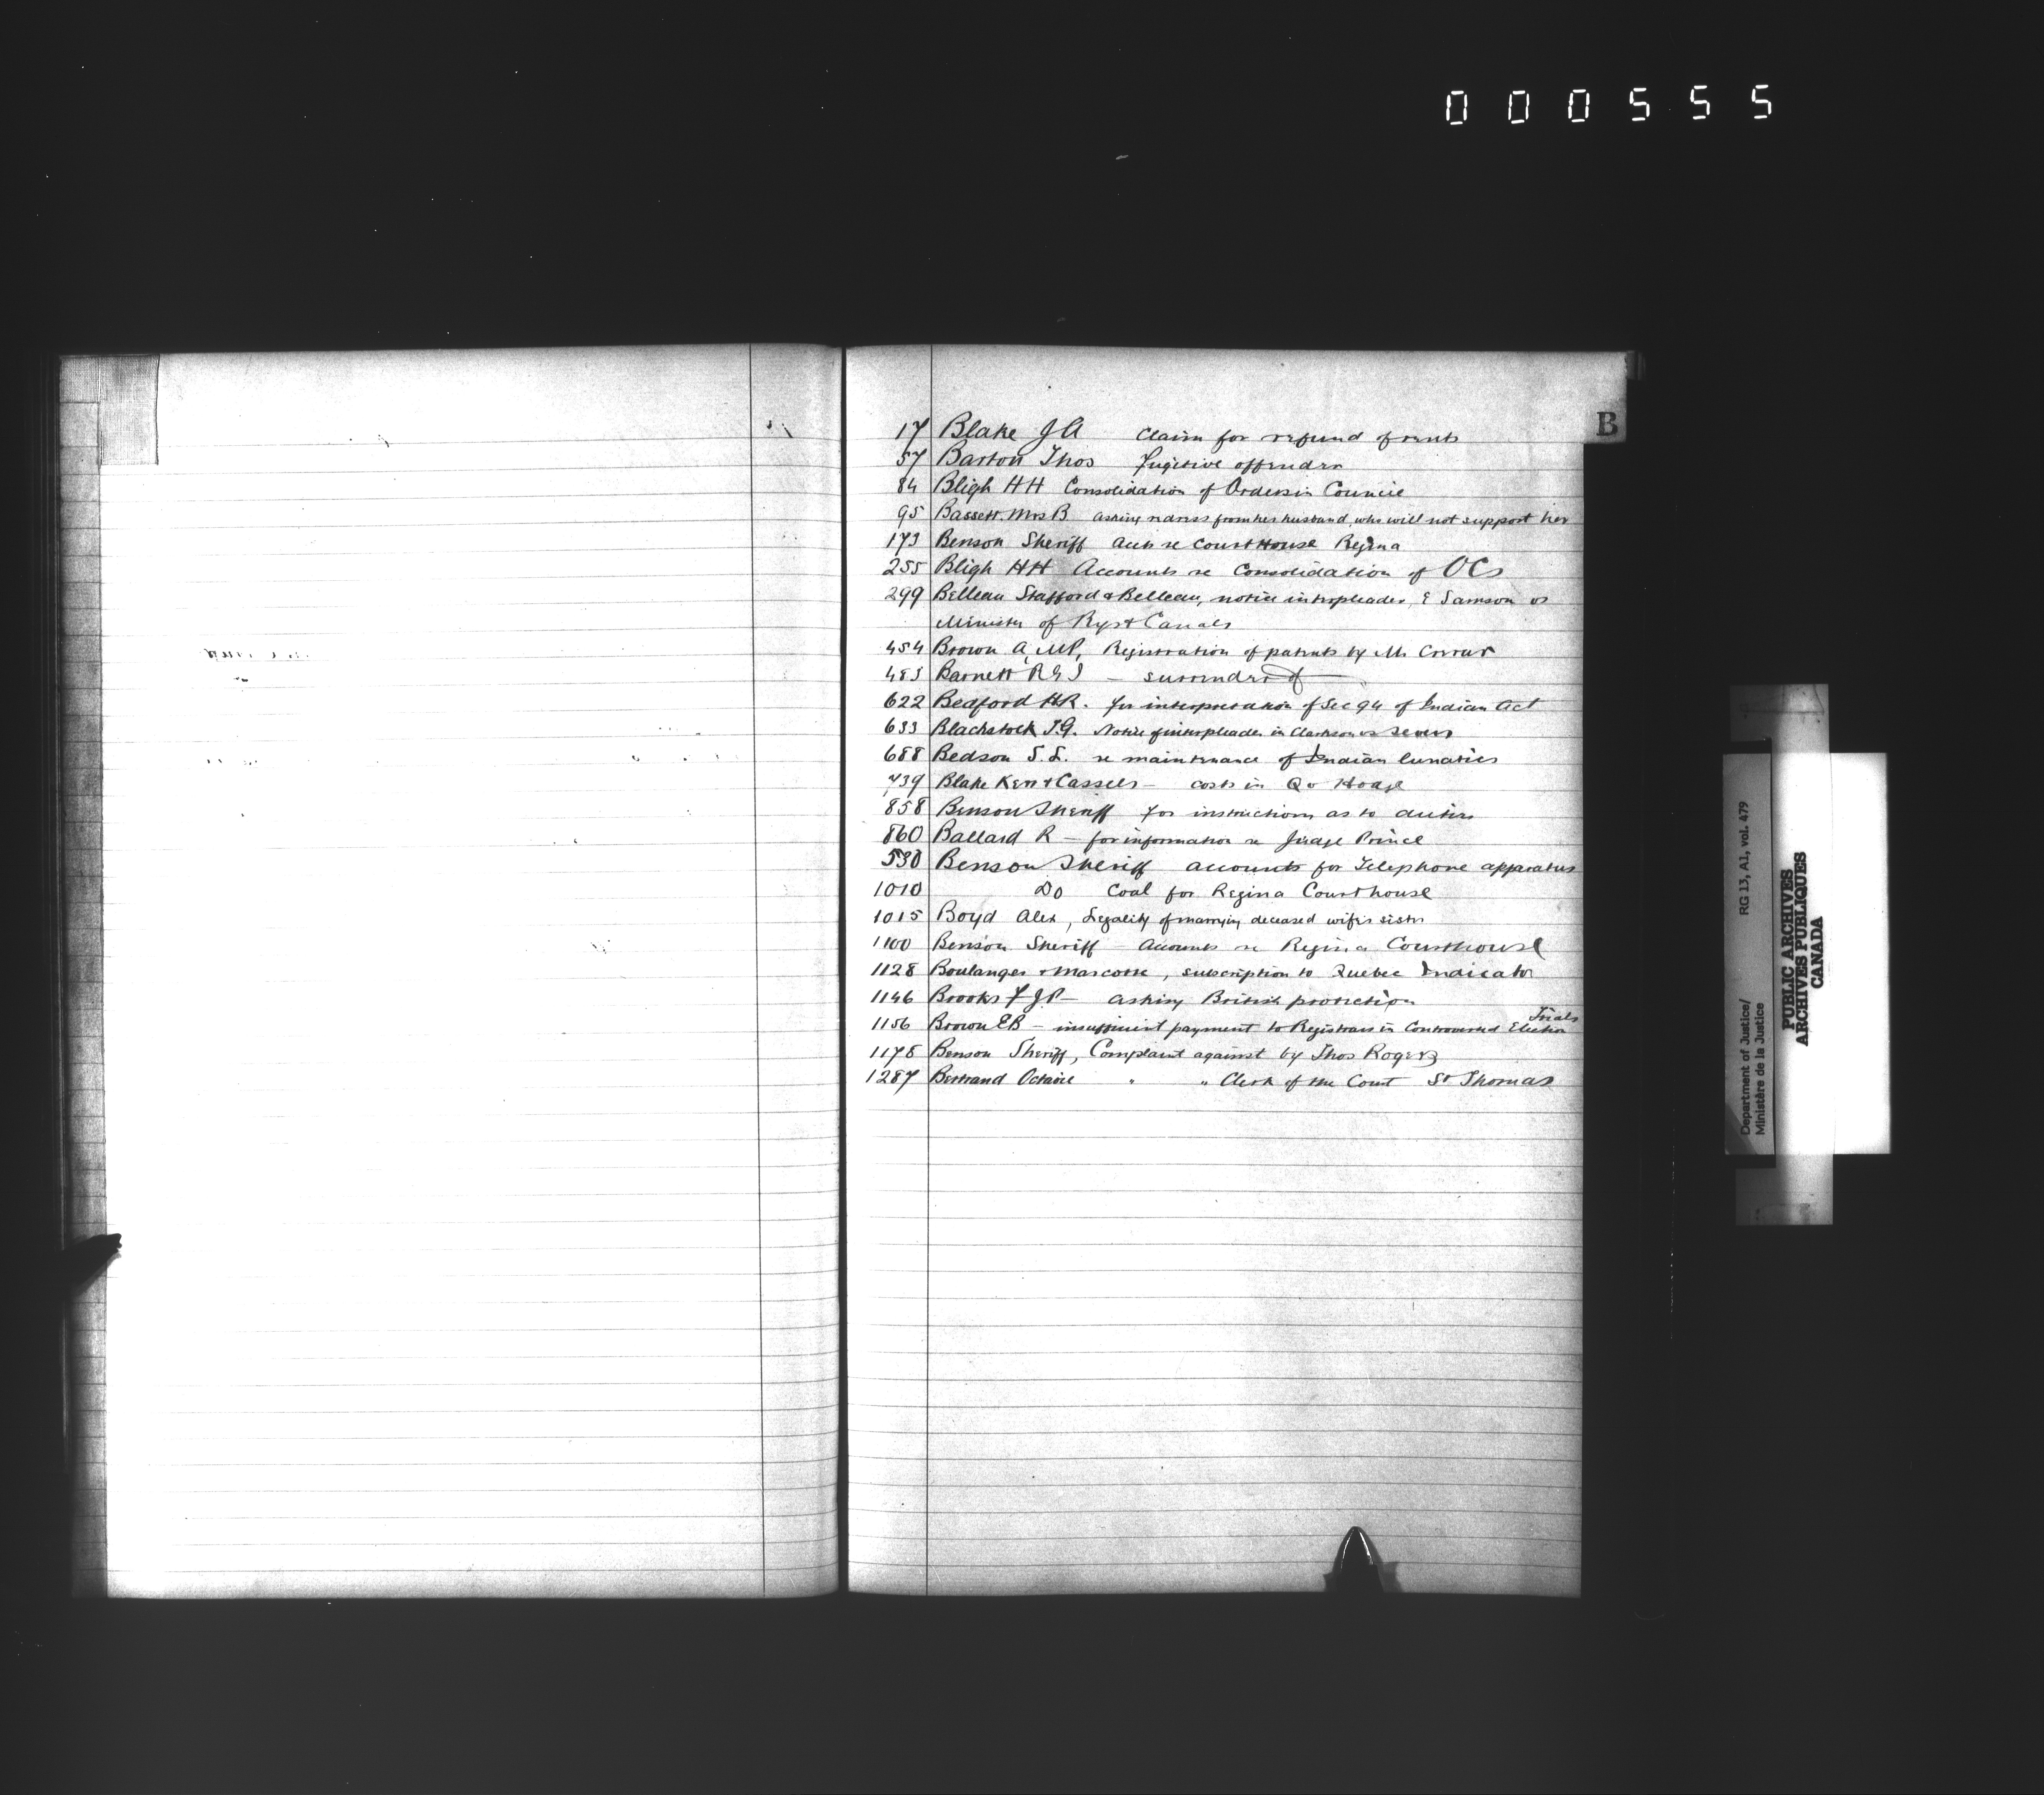 000555
B
17 Blake J A Claim for refund of rents
57 Barton Thos fugitive offender
84 Bligh HH Consolidation of Orders in Council
95 Bassett Mrs B asking redress from her husband, who will not support her
173 Benson Sheriff accts re Court House Regina
255 Bligh HH Accounts re Consolidation of OCs
299 Belleau Stafford & Belleau, notice interpleader, E Samson vs
Minister of Rys & Canals
454 Brown A, MP, Registration of patents by M.
483 Barnett R G S — surrender of —
622 Bedford HR. for interpretation of Sec 94 of Indian Act
633 Blackstock T.G. Notice of interpleader in Clarkson vs
688 Bedson S. L. re maintenance of Indian lunatics
739 Blake Kerr & Cassels — costs in Q v Hodge
858 Benson Sheriff for instructions as to duties
860 Ballard R — for information re Judge Prince
530 Benson Sheriff accounts for Telephone apparatus
1010 Do Coal for Regina Courthouse
1015 Boyd Alex, Legality of marrying deceased wifes sister
1100 Benson Sheriff — accounts re Regina Courthouse
1128 Boulanger & Marcotte, subscription to Quebec Indicator
1146 Brooks F J P — asking British protection
1156 Brown EB — insufficient payment to Registrars in Controverted Election Trials
1178 Benson Sheriff, Complaint against by Thos Rogers
1287 Bertrand Octave " " Clerk of the Court St Thomas
Department of Justice/
Ministère de la Justice
RG 13, A1, vol. 479
PUBLIC ARCHIVES
ARCHIVES PUBLIQUES
CANADA